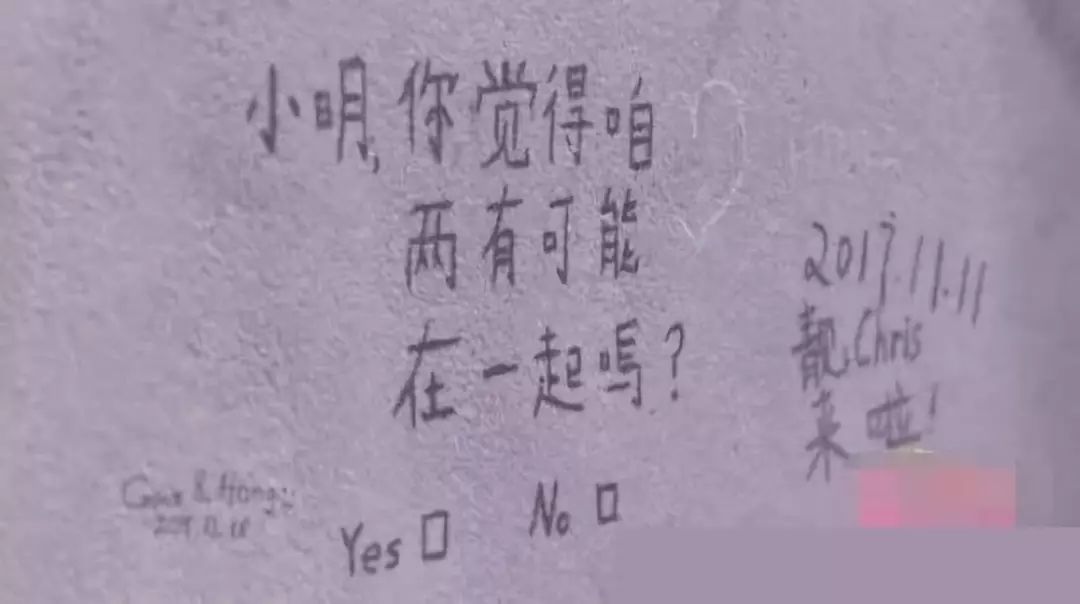 小明,你觉得咱
两有可能
在一起嗎?
Yes □
No □
2017.11.11
靓Chris
来啦!
& Hong